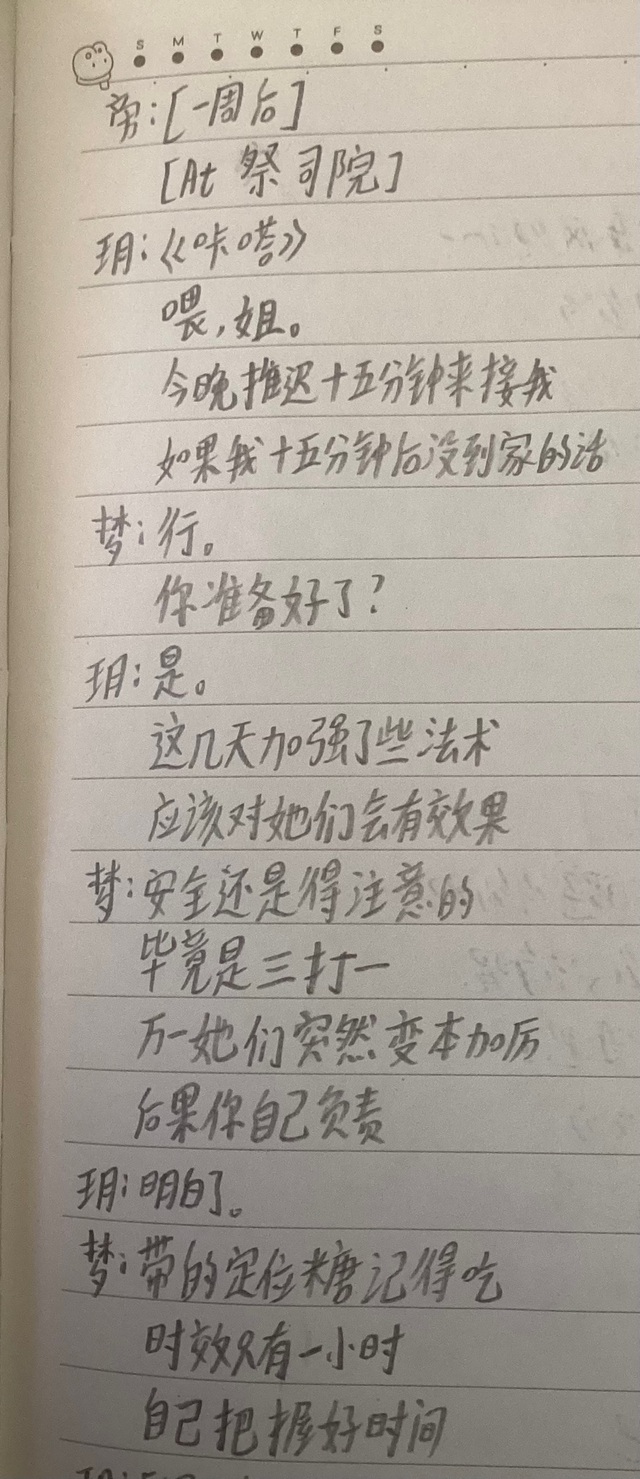 S M T W T F S
旁:[一周后]
[At 祭司院]
玥:《咔嗒》
喂,姐。
今晚推迟十五分钟来接我
如果我十五分钟后没到家的话
梦:行。
你准备好了?
玥:是。
这几天加强了些法术
应该对她们会有效果
梦:安全还是得注意的
毕竟是三打一
万一她们突然变本加厉
后果你自己负责
玥:明白了。
梦:带的定位糖记得吃
时效只有一小时
自己把握好时间